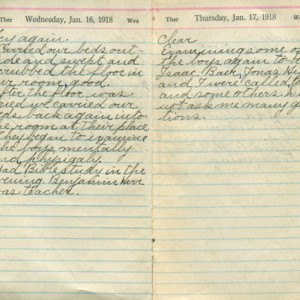 Wednesday, Jan. 16, 1918
Wea
y again.
Carried our beds out-
ide and swept and
scrubbed the floor in
r room good.
fter the floor was
ried we carried our
eds back again into
e room at their place
they began to examine
the boys mentally
and physicaly.
Had Bible study in the
evening. Benjamin
was teacher.
Ther Thursday, Jan. 17, 1918 Wea
Clear
Examining some of
the boys again to
Isaac Baer, Jonas
and I were called
and some others.
ask me many
tions.